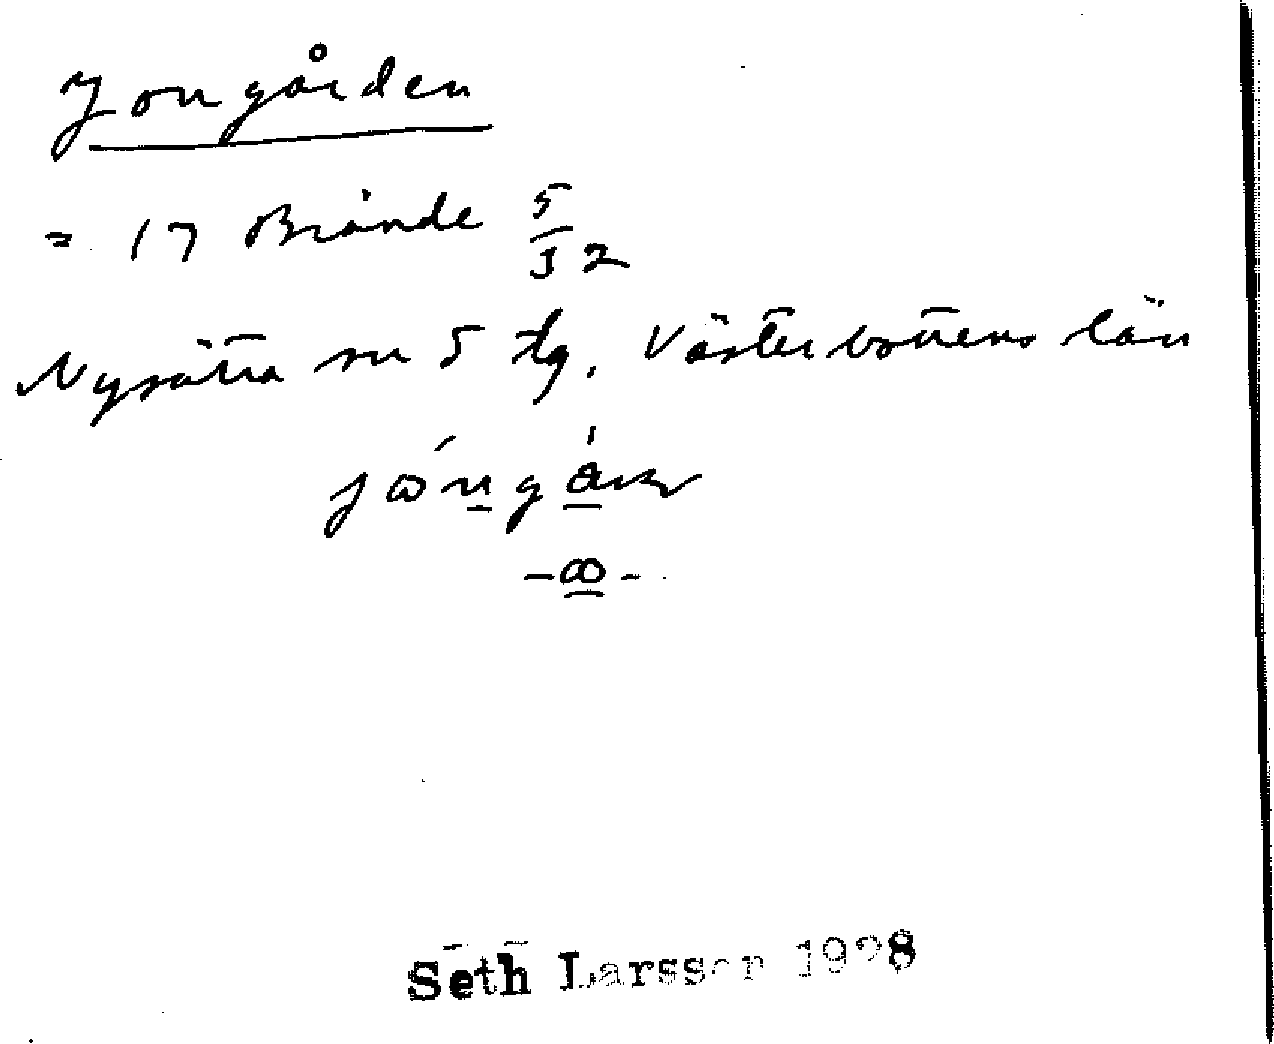 Jongården
= 17 Brände 5/32
Nysätra sn 5 tg. Västerbottens län
Seth Larsson 1928